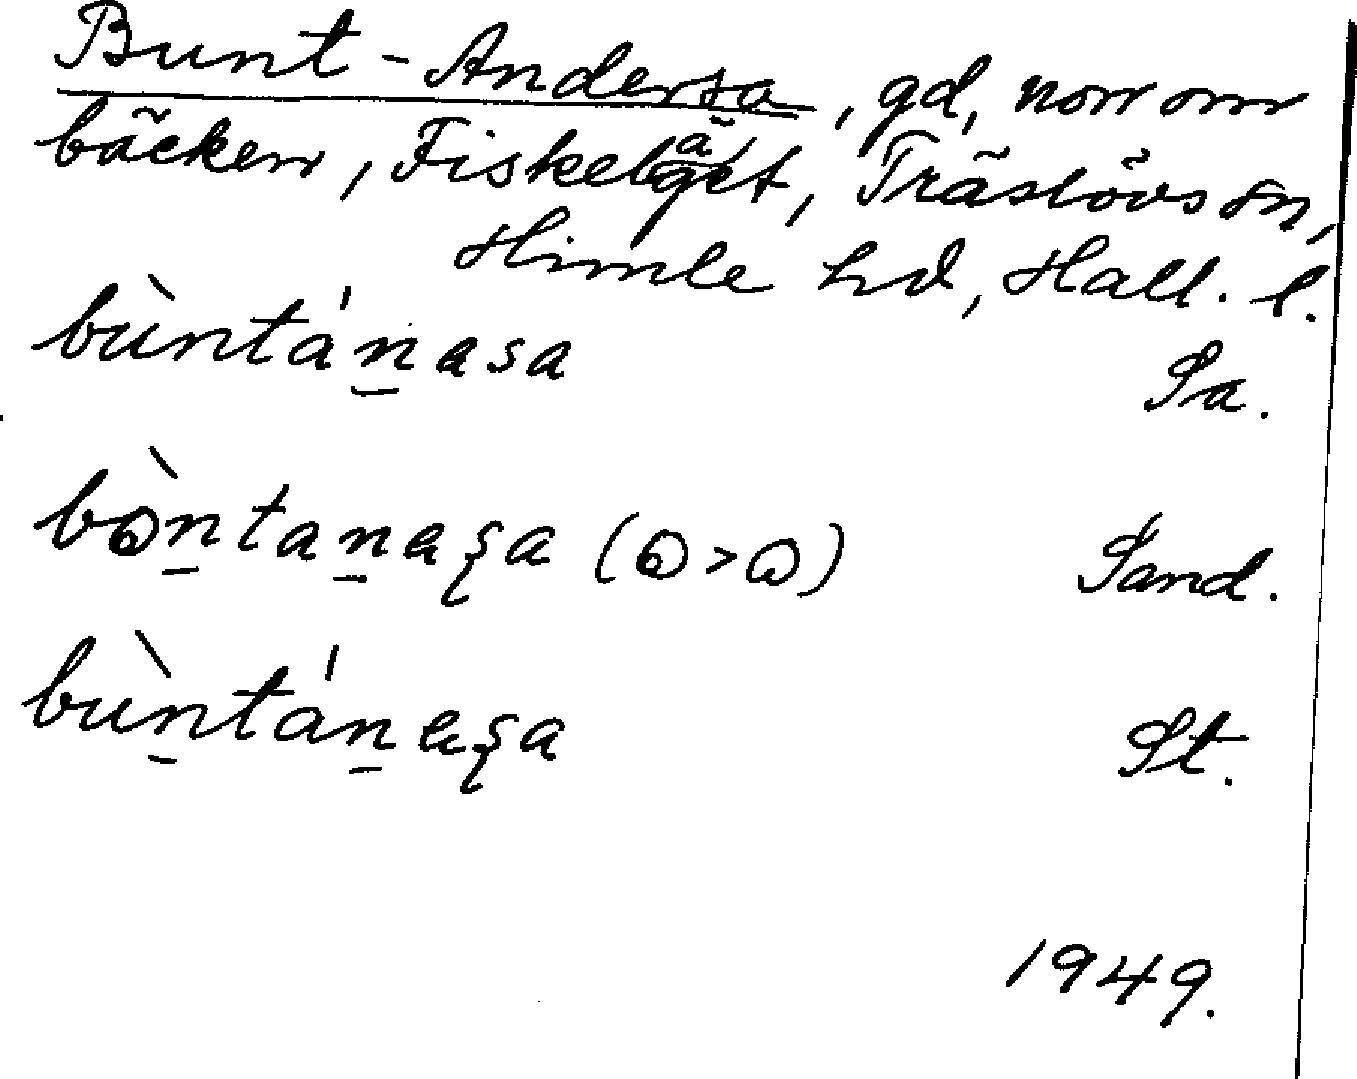 Bunt-Andersa, gd, norr om
bäcken, Fiskeläget, Träslövs sn,
Himle hd, Hall. l.
bùntána̱sa Sa.
(ɷ>ɷ) Sand.
St.
1949.